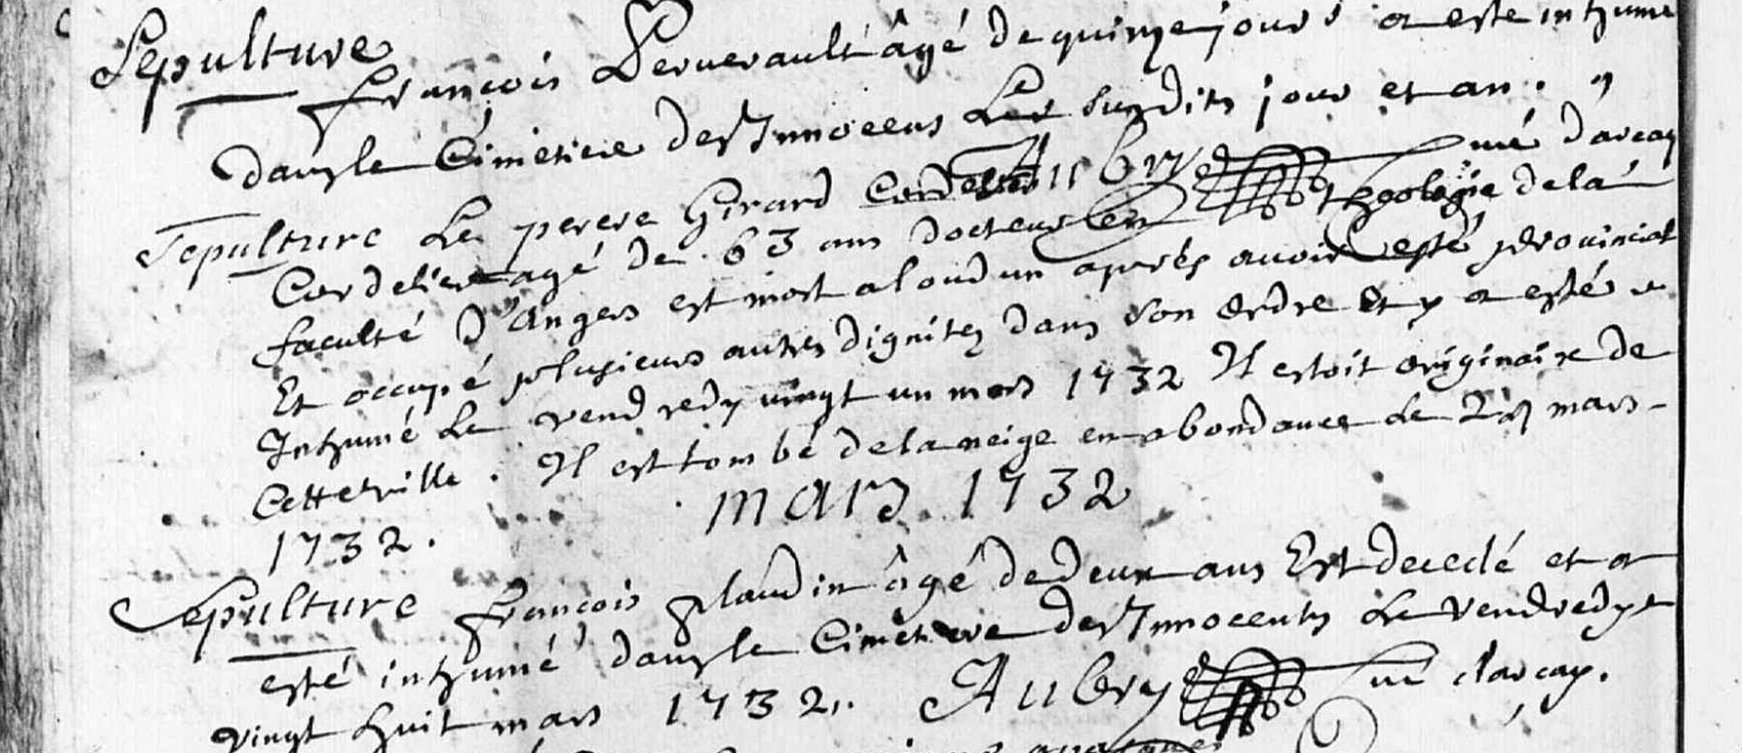 Sepulture
françois Perverault âgé de quinze jours a esté inhumé
dans le Cimetiere des Innocens les susdits jour et an.
Aubry curé darcay
Sepulture Le perere Girard Cordelier
Cordelier agé de 63 ans docteur en theologie de la
faculté d'Angers est mort a loudun aprés avoir esté provincial
Et occupé plusieurs autres dignitez dans son ordre Et y a esté
Inhumé Le vendredy vingt un mars 1732 Il estoit originaire de
Cette ville. Il est tombé de la neige en abondance le mars
1732.
mars 1732
Sepulture françois plaudin âgé de deux ans Est decedé et a
esté inhumé dans le Cimetiere des Innocents Le vendredy
vingt huit mars 1732. Aubry curé darcay.